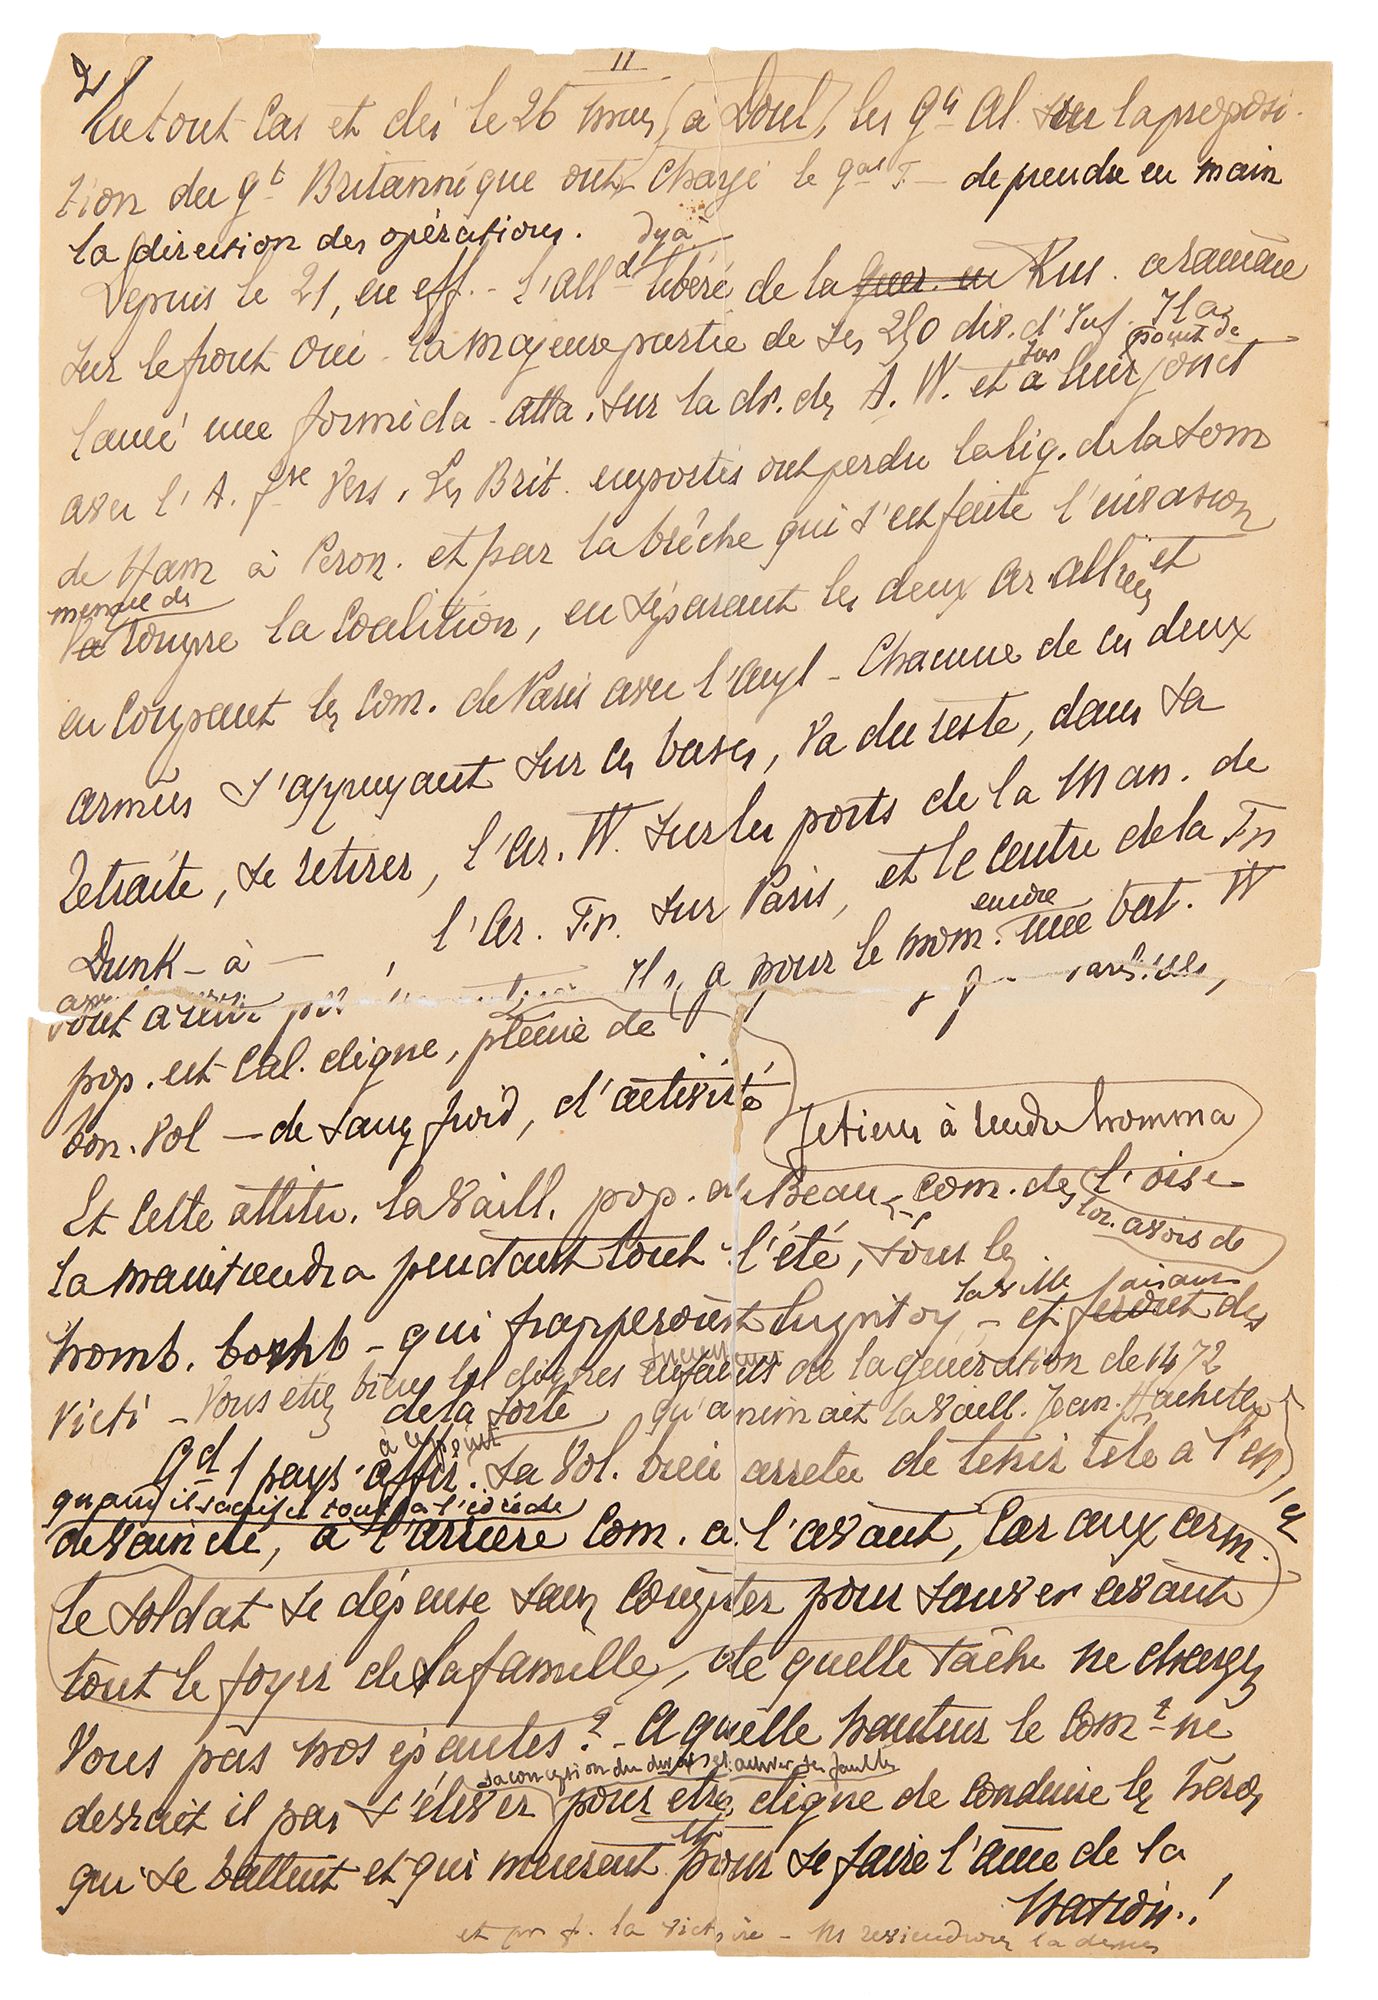 11
2/ En tout cas et dès le 26 mars (à Doul), les gts Al. sur la proposi-
tion du gt Britannique ont chargé le gal F — de prendre en main
la direction des opérations.
déjà
Depuis le 21, en eff. - l'alld libéré de la guer. en Rus. a ramené
sur le front Occi. la majeure partie de ses 210 div. d'Inf. Il a
lancé une formida. atta. sur la dr. des A. W. et sur à leur point de jonct
avec l'A. fse Vers. Les Brit. emportés ont perdu la lig. de la Som
de Ham à Peron. et par la brêche qui s'est faite l'invasion
menace de
va rompre la coalition, en séparant les deux ar. alliées et
en coupant les com. de Paris avec l'Angl - Chacune de ces deux
armées s'appuyant sur ces bases, va du reste, dans sa
retraite, se retirer, l'ar. W. sur les ports de la Man. de
Dunk - à — , l'ar. Fr. sur Paris, et le centre de la Fr
Il y a pour le mom. encore une bat. W
pop. est cal. digne, pleine de
bon. vol — de sang froid, d'activité
Je tiens à rendre homma
Et cette attitu. la vaill. pop. de Beau - com. de l'Oise
lor. avois de
la maintiendra pendant tout l'été, sous les
nomb. bomb - qui frapperont la ville faisant des
victi - Vous etiez bien les dignes enfants de la génération de 1472
de la sorte qu'animait la vaill. Jean. Hachette
à ce point
Qd 1 pays affir. sa vol. bien arretée de tenir tete a l'en
quand il sacrifie tout a l'idée de
de vaincre, à l'arrière com. a l'avant, car aux arm.
le soldat se dépense sans compter pour sauver avant
tout le foyer de la famille, de quelle tâche ne chargez
vous pas nos épaules ? - A quelle hauteur le comt ne
sa conception du devoir et activer ses facultés
devrait il pas s'élever pour etre digne de conduire les héros
qui se battent et qui meurent et pour se faire l'âme de la
Nation !
et pr f. la victoire - Ns reviendrons la dessus